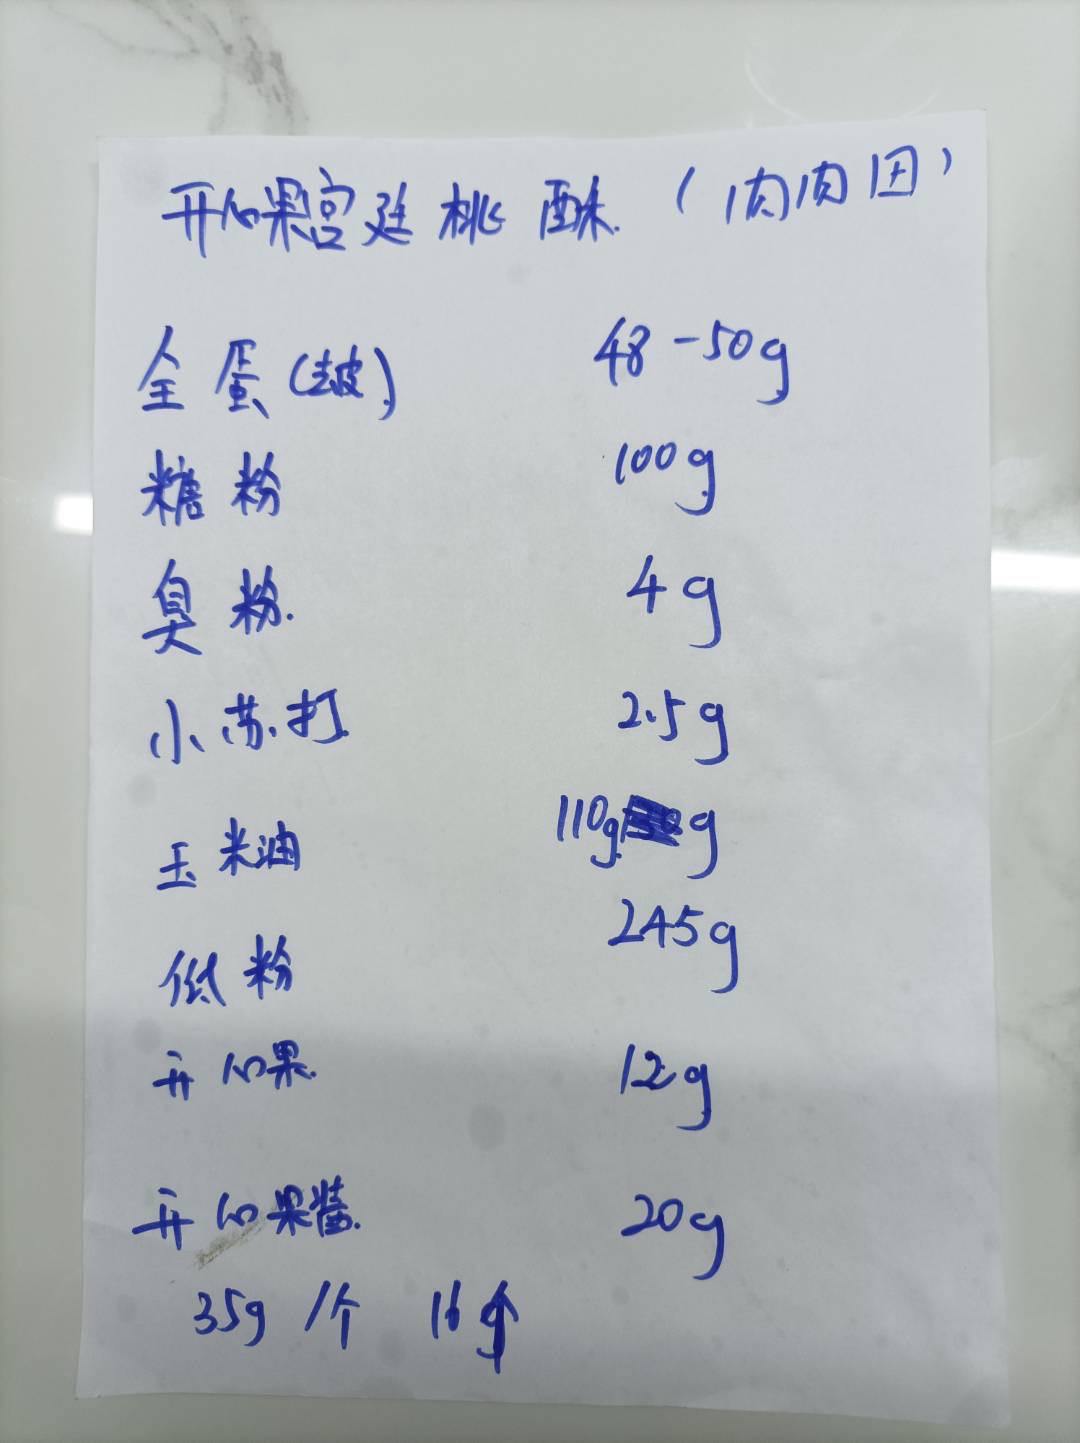 开心果宫廷桃酥(肉肉团)
全蛋(去皮) 48-50g
糖粉 100g
臭粉. 4g
小苏打 2.5g
玉米油 110g g
低粉 245g
开心果 12g
开心果酱 20g
35g/个 16个